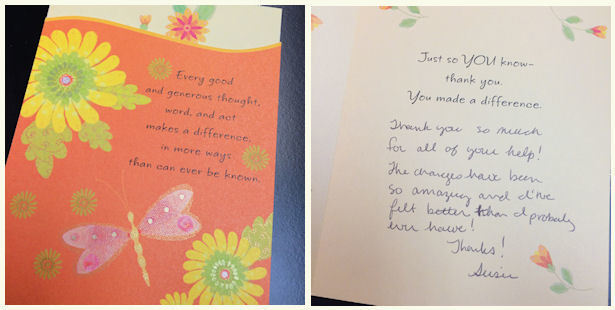 Every good
and generous thought,
word, and act
makes a difference,
in more ways
than can ever be known.
Just so YOU know–
thank you.
You made a difference.
Thank you so much
for all of your help!
The changes have been
so amazing and I've
felt better than I probably
ever have!
Thanks!
Susie